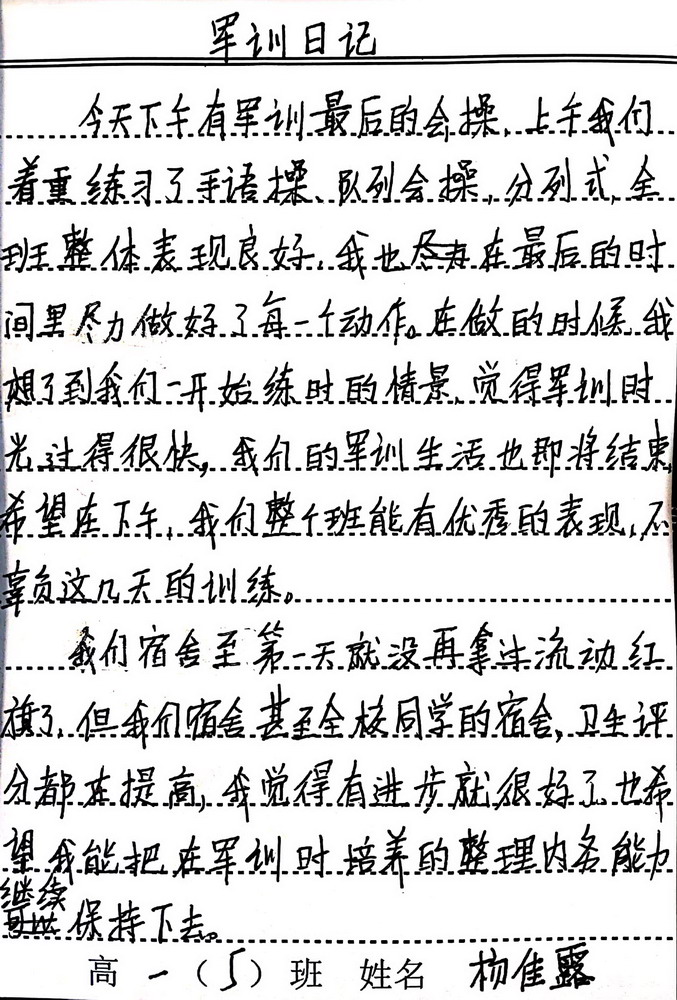 军训日记
今天下午有军训最后的会操,上午我们
着重练习了手语操、队列会操,分列式,全
班整体表现良好,我也在最后的时
间里尽力做好了每一个动作。在做的时候,我
想了到我们一开始练时的情景,觉得军训时
光过得很快,我们的军训生活也即将结束,
希望在下午,我们整个班能有优秀的表现,不
辜负这几天的训练。
我们宿舍至第一天就没再拿过流动红
旗了,但我们宿舍甚至全校同学的宿舍,卫生评
分都在提高,我觉得有进步就很好了,也希
望我能把在军训时培养的整理内务能力
继续
保持下去。
高一(5)班 姓名 杨佳露